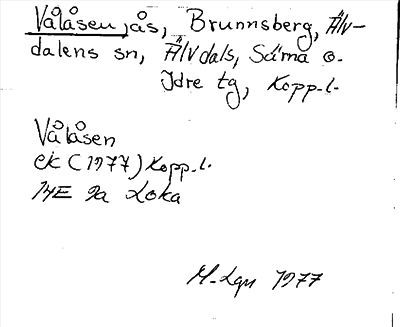 Vålåsen, ås, Brunnsberg, Älv-
dalens sn, Älvdals, Särna o.
Idre tg, Kopp.l.
Vålåsen
ek (1977) Kopp.l.
14E 9a Loka
M-Lgn 1977